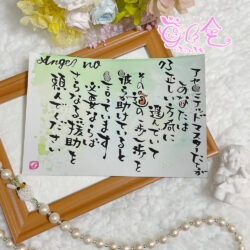 Angel no
アセンデッドマスターたちが
あなたは
正しい方向に
進んでいて
その道の一歩一歩を
彼らが助けていると
言っています
必要ならば
さらなる援助を
頼んでください